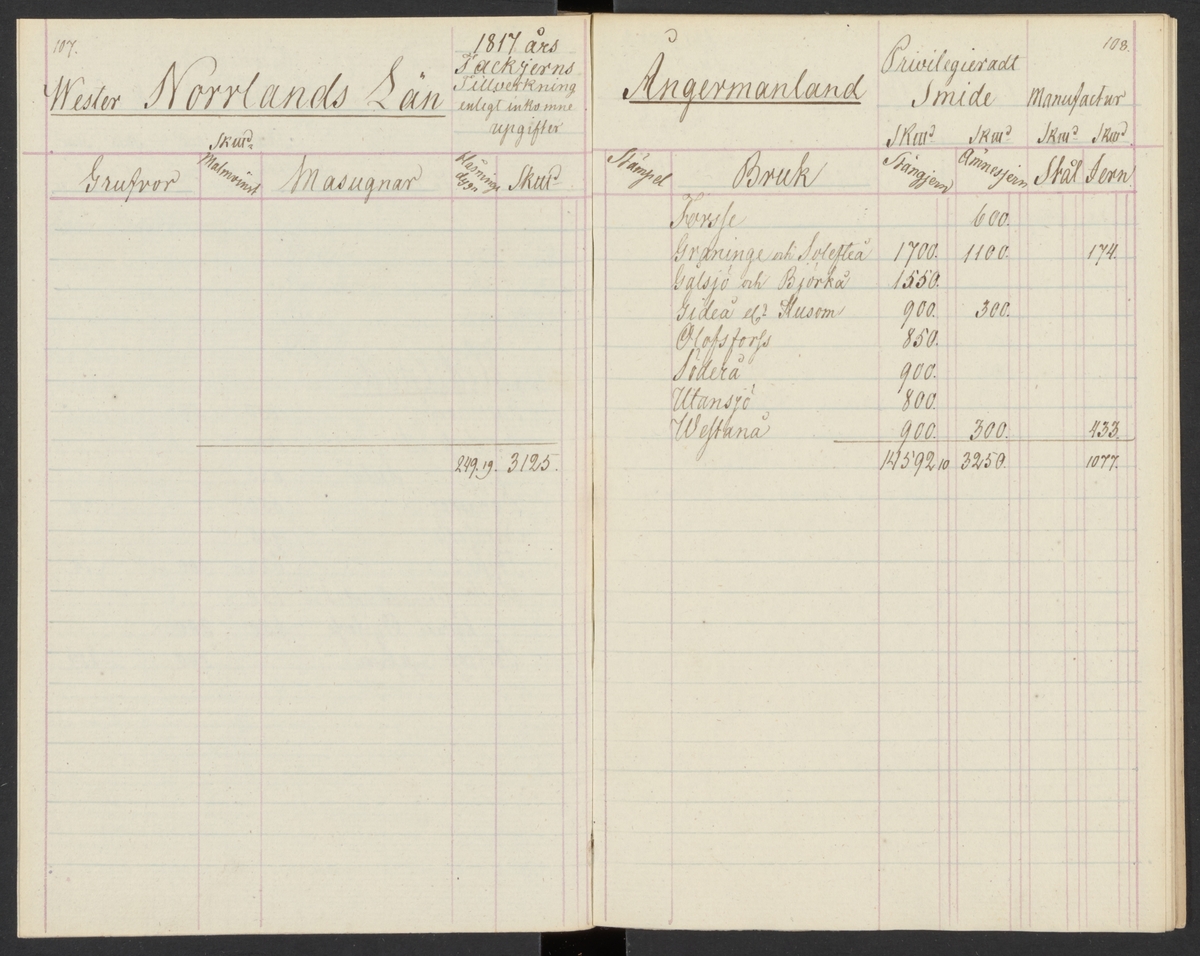 107.
Wester Norrlands Län
1817 års
Tackjerns
Tillverkning
enligt inkomne
upgifter
Skud.
Grufvor Malmvinst Masugnar Blåsnings dygn Skud.
249.19. 3125.
108.
Ångermanland
Privilegieradt
Smide Manufactur
Skud. Skud. Skud. Skud.
Stämpel Bruk Stångjern Ämnesjern Stål Jern
Forsse 600.
Graninge och Solefteå 1700. 1100. 174.
Gålsjö och Björkå 1550.
Gideå Husom 900. 300.
Olofsforss 850.
Söderå 900.
Utansjö 800.
Westanå 900. 300. 433.
14592 10 3250. 1077.